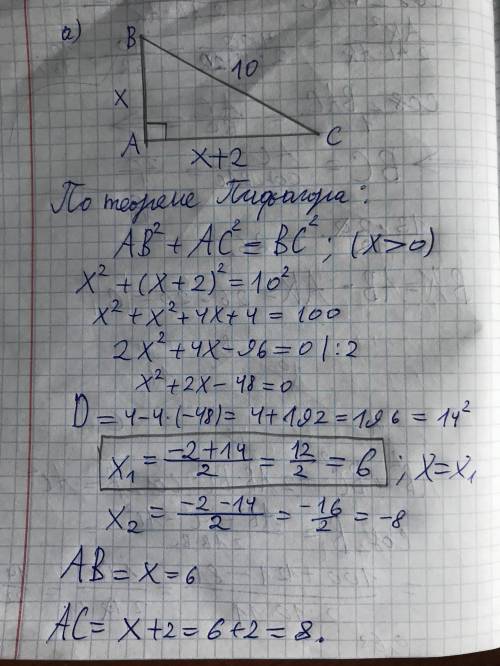 а)
B
10
x
A
C
x+2
По теореме Пифагора:
AB² + AC² = BC²; (x>0)
x² + (x+2)² = 10²
x² + x² + 4x + 4 = 100
2x² + 4x - 96 = 0 |:2
x² + 2x - 48 = 0
D = 4 - 4·(-48) = 4 + 192 = 196 = 14²
x₁ = (-2+14)/2 = 12/2 = 6 ; x = x₁
x₂ = (-2-14)/2 = -16/2 = -8
AB = x = 6
AC = x+2 = 6+2 = 8.